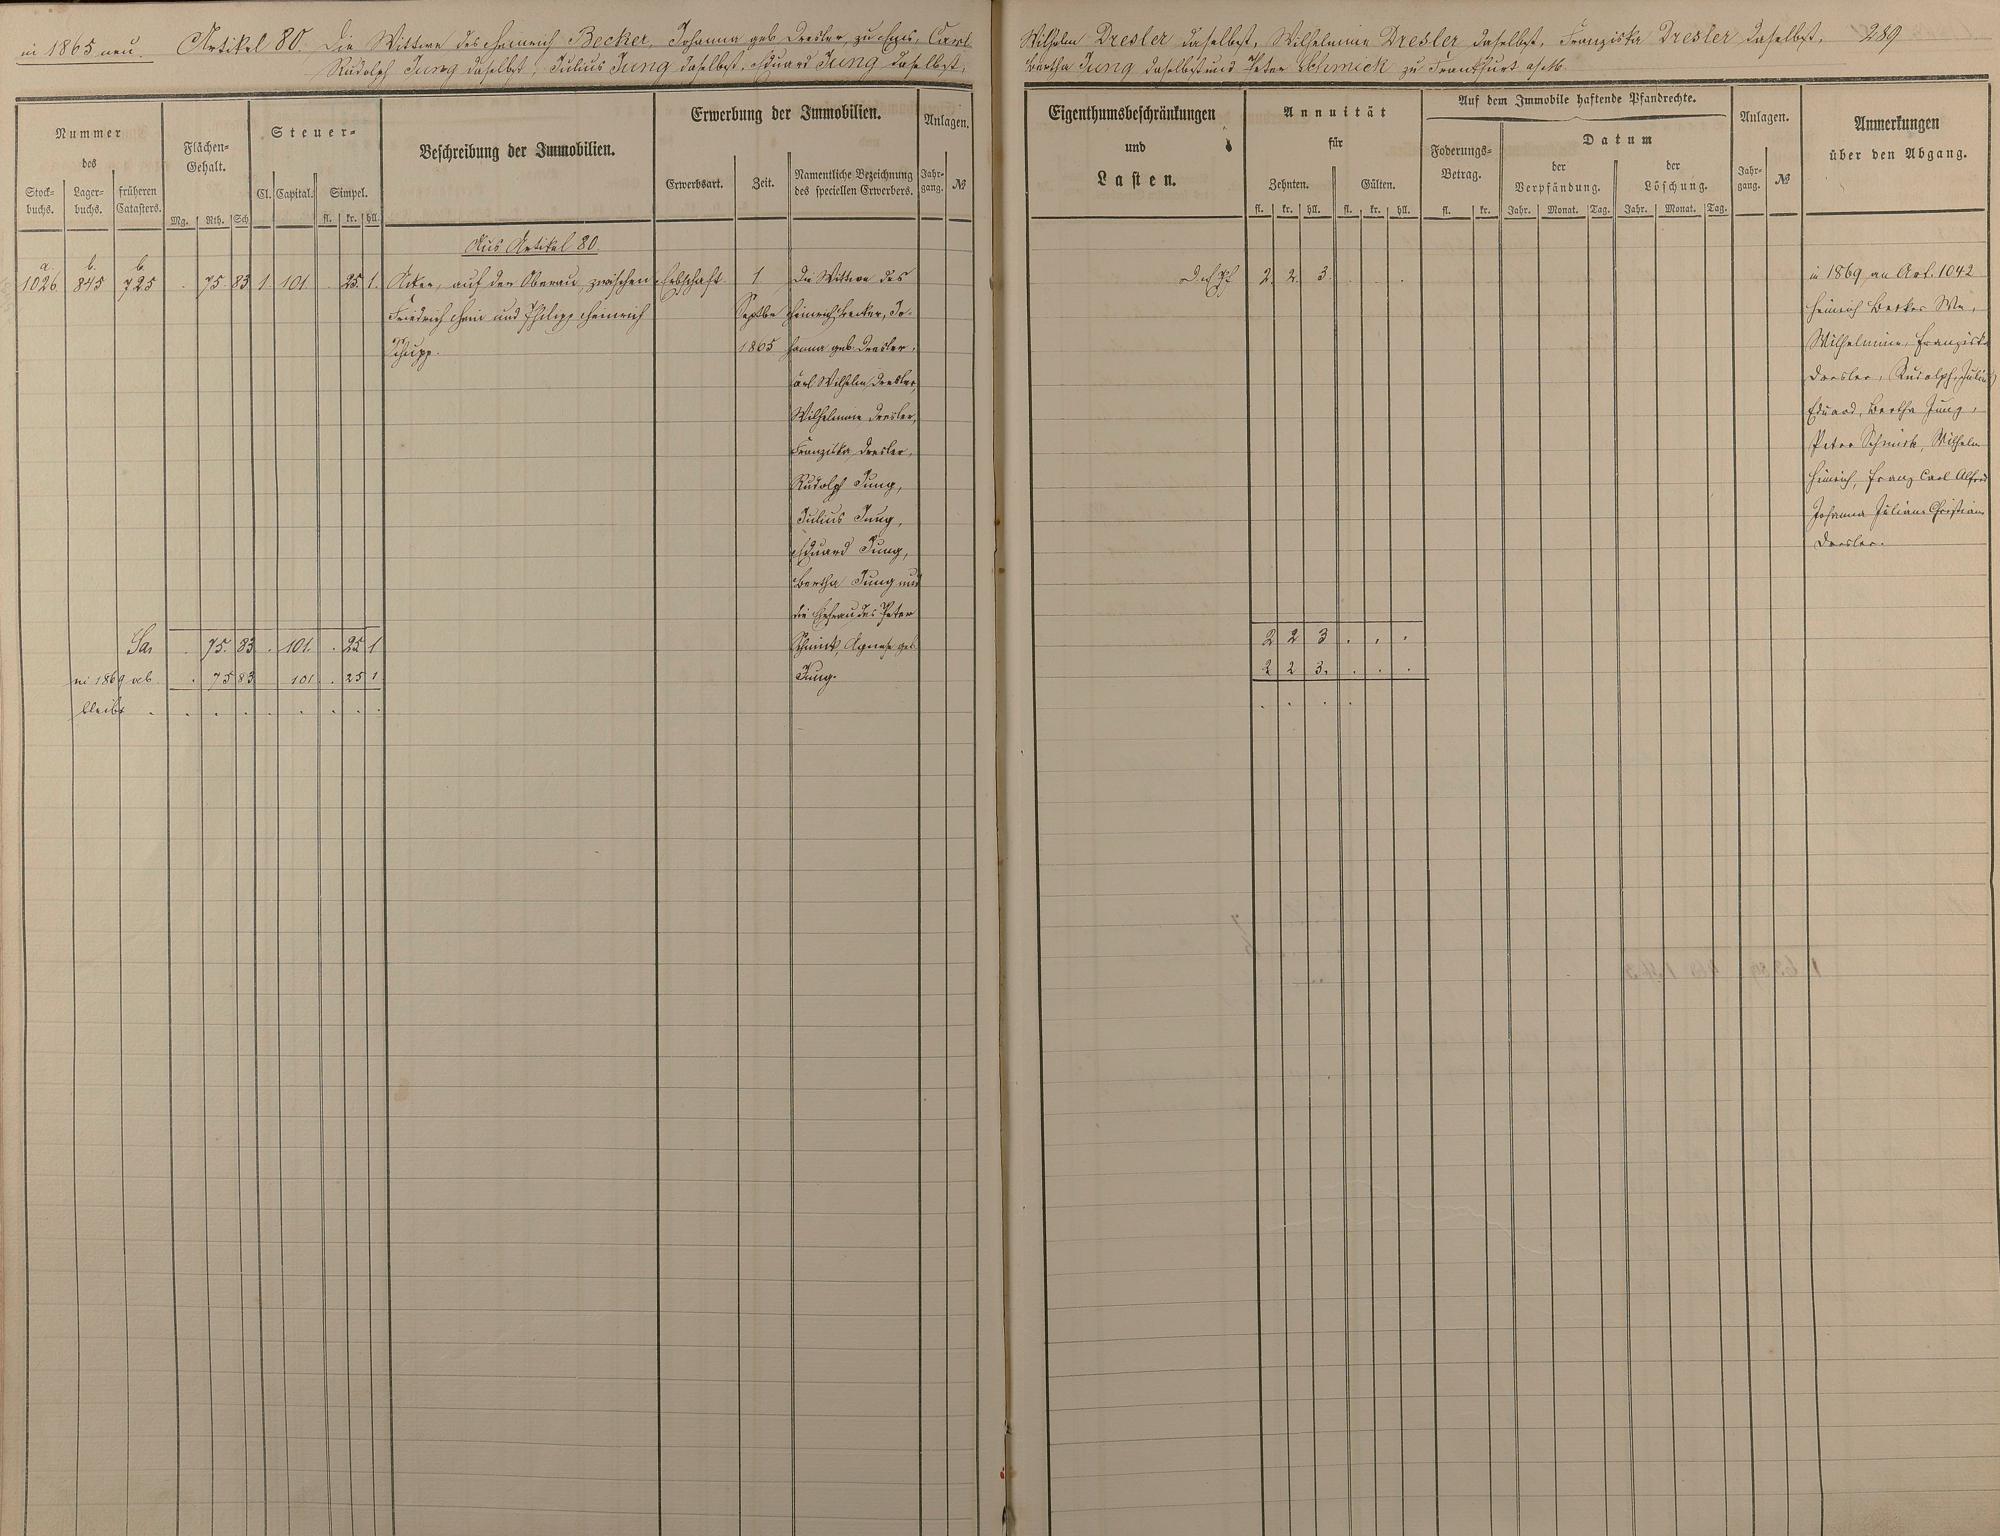 in 1865 neu. Artikel 80. Die Wittwe des Heinrich Becker, Johanna geb Dresler, zu Ems, Carl
Rudolph Jung daselbst, Julius Jung daselbst, Eduard Jung daselbst,
Wilhelm Dresler daselbst, Wilhelmine Dresler daselbst, Franziska Dresler daselbst, 289
Bertha Jung daselbst und Peter Schmick zu Frankfurt a/M.
Nummer
des
Stock-
buchs.
Lager-
buchs.
früheren
Catasters.
Flächen-
Gehalt.
Mg. Rth. Sch.
Steuer-
Cl. Capital. Simpel.
fl. kr. hll.
Beschreibung der Immobilien.
Erwerbung der Immobilien.
Erwerbsart. Zeit.
Namentliche Bezeichnung
des speciellen Erwerbers.
Anlagen.
Jahr-
gang. №
Eigenthumsbeschränkungen
und
Lasten.
Annuität
für
Zehnten. Gülten.
fl. kr. hll. fl. kr. hll.
Auf dem Immobile haftende Pfandrechte.
Foderungs-
Betrag.
fl. kr.
Datum
der
Verpfändung.
der
Löschung.
Jahr. Monat. Tag. Jahr. Monat. Tag.
Anlagen.
Jahr-
gang. №
Anmerkungen
über den Abgang.
Aus Artikel 80.
a. b. b.
1026 845 725 . 75 83 1. 101 . 25. 1.
Acker, auf der Oberau, zwischen
Friedrich und Philipp Heinrich
Schupp.
Erbschaft
1
Septbr
1865
Die Wittwe des
Heinrich Becker, Jo-
hanna geb. Dresler,
Carl Wilhelm Dresler,
Wilhelmine Dresler,
Franziska Dresler,
Rudolph Jung,
Julius Jung,
Eduard Jung,
Bertha Jung und
die Ehefrau des Peter
Schmick, Agnese geb.
Jung.
2 2 3. . . .
in 1869 an Art. 1042
Heinrich Becker We,
Wilhelmine, Franziska
Dresler, Rudolph, Julius
Eduard, Bertha Jung,
Peter Schmick, Wilhelm
Heinrich, Franz Carl Alfred
Johanna Juliane Christiane
Dresler.
Sa. . 75. 83 . 101. . 25 1
2 2 3 . . .
in 1869 ab . 75 83 101 . 25 1
2 2 3. . . .
bleibt . . . . . . . . .
. . . .